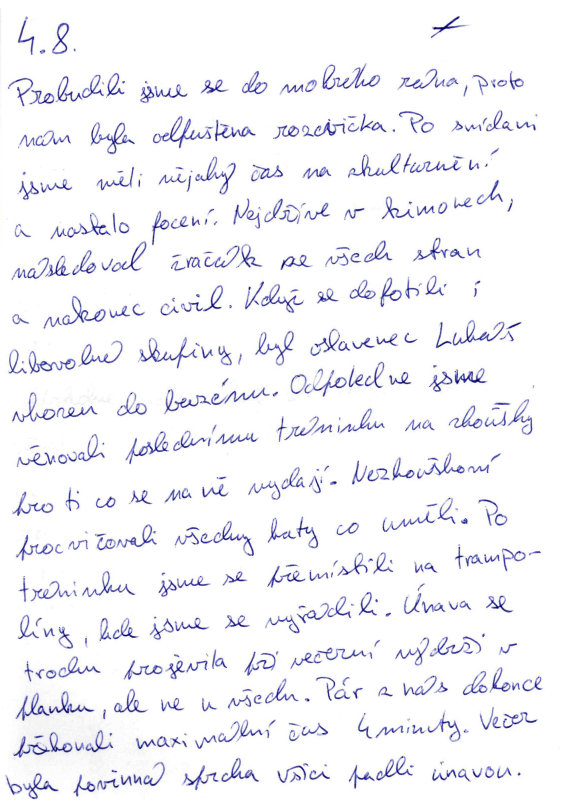 4.8.
Probudili jsme se do mokrého rána, proto
nám byla odpuštěna rozcvička. Po snídani
jsme měli nějaký čas na zkulturnění
a nastalo focení. Nejdříve v kimonech,
následoval žráčik ze všech stran
a nakonec civil. Když se dofotili i
libovolné skupiny, byl oslavenec Lukáš
vhozen do bazénu. Odpoledne jsme
věnovali poslednímu tréninku na zkoušky
pro ti co se na ně vydají. Nezkouškoví
procvičovali všechny katy co uměli. Po
tréninku jsme se přemístili na trampo-
líny, kde jsme se vyřádili. Únava se
trochu projevila při večerní výdrži v
planku, ale ne u všech. Pár z nás dokonce
překonali maximální čas 4 minuty. Večer
byla povinná sprcha všici padli únavou.